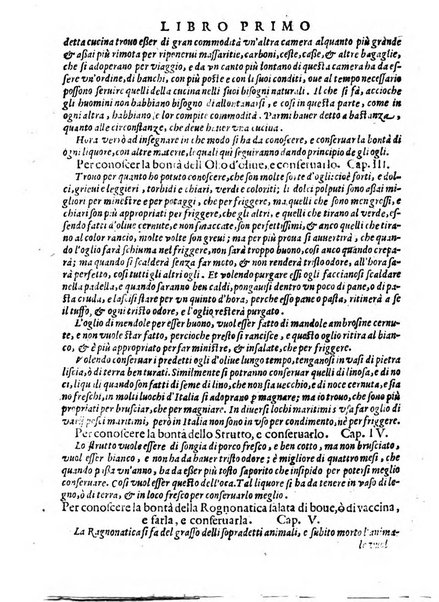 LIBRO PRIMO
detta cucina trouo eßer di gran commodità vn'altra camera alquanto più grande
& aßai più rimota per ripenerui massaritie, carboni, ceste, caße, & altre bagaglie,
che si adoperano per viaggio, & da vn canto più lontano di questa camera hà da es-
sere vn'ordine, di banchi, con più poste e con li suoi conditi, oue al tempo necessario
possono seruire quelli della cucina nelli suoi bisogni naturali. Il che si fà, accioche
gli huomini non habbiano bisogno d'allontanarsi, e così in questa parte, come in
tutte l'altre, habbiano, e lor compite commodità. Parmi hauer detto a bastanza,
quanto alle circonstanze, che deue hauer vna cucina.
Hora verrò ad insegnare il modo come si hà da conoscere, e conseruar la bontà di
ogni liquore, con altre materie, le quali quì seguiranno dando principio de gli ogli.
Per conoscer la bontà dell'Olio d'oliue, e conseruarlo. Cap. III.
Trouo per quanto ho potuto conoscere, che ne sono molte sorte d'oglio, cioè forti, e dol-
ci, grieui e leggieri, torbidi e chiari, verdi e coloriti; li dolci polputi sono assai mi-
gliori per minestre e per potaggi, che per friggere, ma quelli che sono men grossi, e
chiari sono più appropriati per friggere, che gli altri, e quelli che tirano al verde, es-
sendo fatti d'oliue cernute, e non fracccate, son perfettissimi, & anco quelli che tira-
no al color rancio, molte volte son greui; ma per più proua si auuertirà, che quan-
do l'oglio farà schiuma nel friggere, non sarà troppo buono, così anco quando crepa-
rà; ma quando si scalderà senza far rumore, & non renderà tristo odore, all'hora sa-
rà perfetto, così tutti gli altri ogli. Et volendo purgare essi ogli faccianosi scaldare
nella padella, e quando saranno ben caldi, pongausi dentro vn poco di pane, o di pa-
sta cruda, e lascisi stare per vn quinto d'hora, perche esso pane o pasta, ritirerà a se
il tuffo, & ogni tristo odore, e l'oglio resterà purgato.
L'oglio di mendole per esser buono, vuol'esser fatto di mandole ambrosine cernu-
te, e non vuole esser fatto di molto tempo, perche presto si rancisce, e questo oglio ritira al bian-
co, & è più appropriato per far minestre, & insalate, che per friggere.
Volendo conseruar i predetti ogli d'oliue lungo tempo, tenganosi in vasi di pietra
liscia, ò di terra ben turati. Similmente si possono conseruare quelli di linosa, e di no-
ci, li quali quando son fatti di seme di lino, che non sia uecchio, e di noce cernuta, e sia-
no freschi, in molti luochi d'Italia si adoprano p magnare; ma io trouo, che sono più
propriati per brusciar, che per magniare. In diuersi lochi maritimi s'vsa far oglio di
varij pesci maritimi, però in Italia non sono in vso per condire, nè per friggere.
Per conoscere la bontà dello Strutto, e conseruarlo. Cap. IV.
Lo strutto vuole essere di songia di porco fresco, e ben cotto, ma non brusciato,
vuol esser bianco, e non ha da hauer tristo odore, & è migliore di quattro mesi, che
quando passa vn'anno, hà da eßer più tosto saporito che insipido per potersi meglio
conseruare. Così vuol'esser questo dell'oca. Tal liquore si hà da tenere in vaso di le-
gno, ò di terra, & in loco fresco per conseruarlo meglio.
Per conoscere la bontà della Rognonatica salata di boue, ò di vaccina,
e farla, e conseruarla. Cap. V.
La Ragnonatica si fa del grasso delli sopradetti animali, e subito morto l'anima-
le vuol